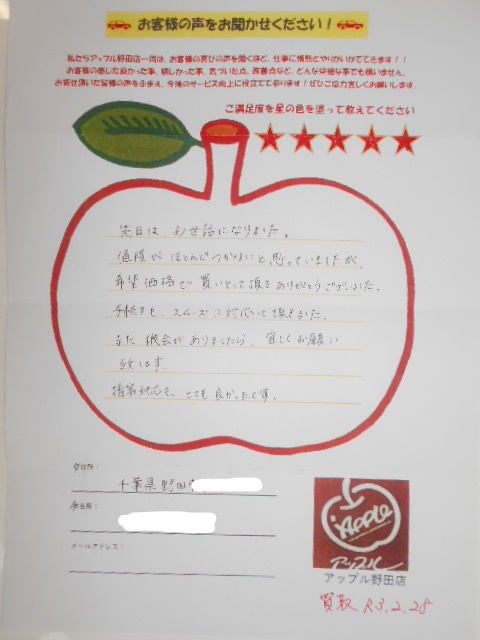 お客様の声をお聞かせください!
私たちアップル野田店一同は、お客様の喜びの声を聞くほど、仕事に情熱とやりがいがでてきます!!
お客様の感じた良かった事、嬉しかった事、気づいた点、改善点など、どんな些細な事でも構いません。
お寄せ頂いた皆様の声をふまえ、今後のサービス向上に役立てて参ります!ぜひご協力宜しくお願いします。
ご満足度を星の色を塗って教えてください
先日は お世話になりました。
値段が ほとんどつかないと思っていましたが、
希望価格で 買いとって頂き ありがとうございました。
手続きも、スムーズに対応して頂きました。
また 機会が ありましたら、宜しくお願い
致します。
接客対応も、とても良かったです。
ご住所:
千葉県野田市
お名前:
メールアドレス:
Apple
アップル
アップル野田店
買取 R3.2.28